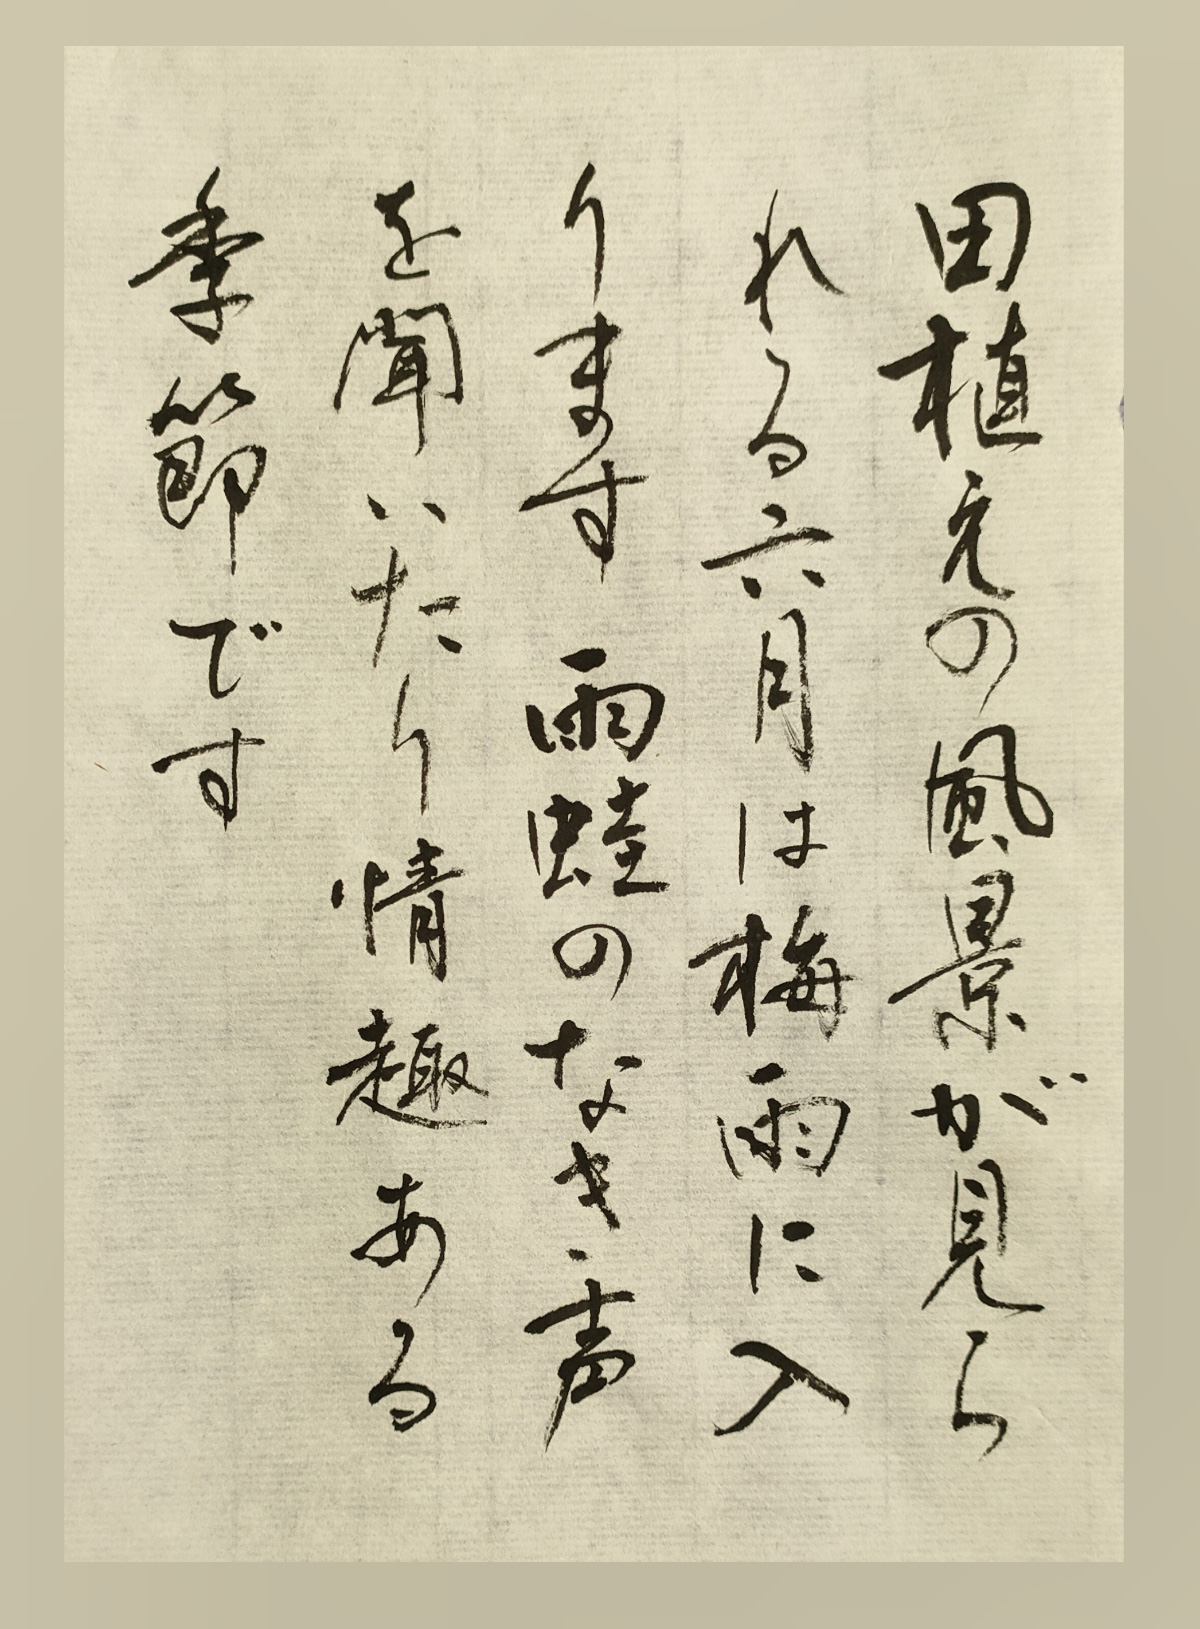 田植えの風景が見ら
れる六月は梅雨に入
ります 雨蛙のなき声
を聞いたり情趣ある
季節です